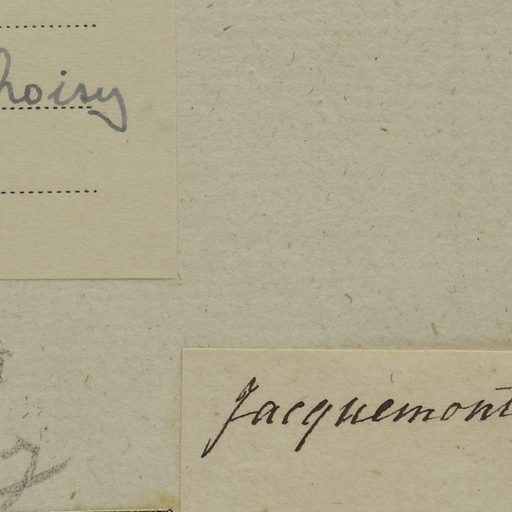 hoisy
Jacquemont